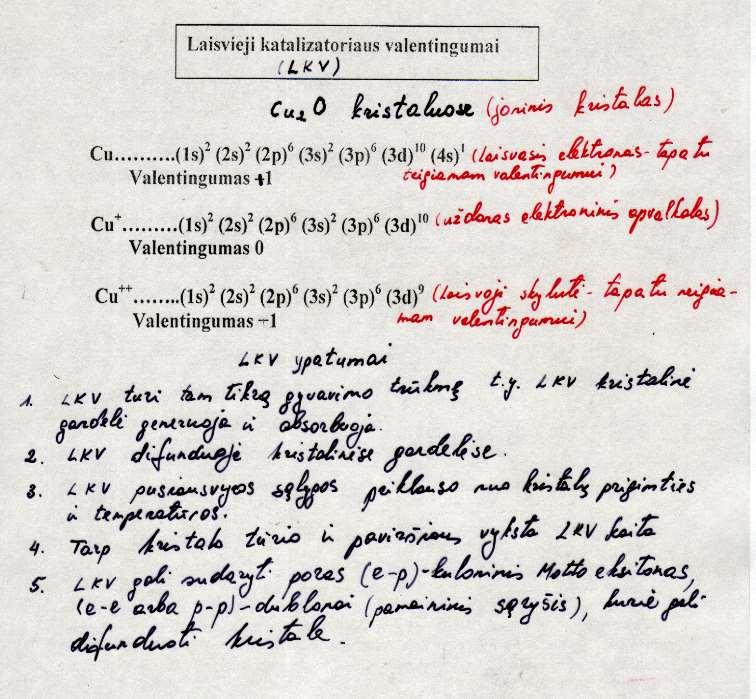 Laisvieji katalizatoriaus valentingumai
(LKV)
Cu₂O kristaluose (joninis kristalas)
Cu..........(1s)² (2s)² (2p)⁶ (3s)² (3p)⁶ (3d)¹⁰ (4s)¹ (Laisvasis elektronas - tapatu
Valentingumas +1 teigiamam valentingumui)
Cu⁺.........(1s)² (2s)² (2p)⁶ (3s)² (3p)⁶ (3d)¹⁰ (uždaras elektroninis apvalkalas)
Valentingumas 0
Cu⁺⁺........(1s)² (2s)² (2p)⁶ (3s)² (3p)⁶ (3d)⁹ (Laisvoji skylutė - tapatu neigia-
Valentingumas -1 mam valentingumui)
LKV ypatumai
1. LKV turi tam tikrą gyvavimo trukmę t.y. LKV kristalinė
gardelė generuoja ir absorbuoja.
2. LKV difunduoja kristalinėse gardelėse.
3. LKV pusiausvyros sąlygos priklauso nuo kristalų prigimties
ir temperatūros.
4. Tarp kristalo tūrio ir paviršiaus vyksta LKV kaita
5. LKV gali sudaryti poras (e-p)-kuloninis Motto eksitonas,
(e-e arba p-p)-dublonai (pamaininis sąryšis), kurie gali
difunduoti kristale.